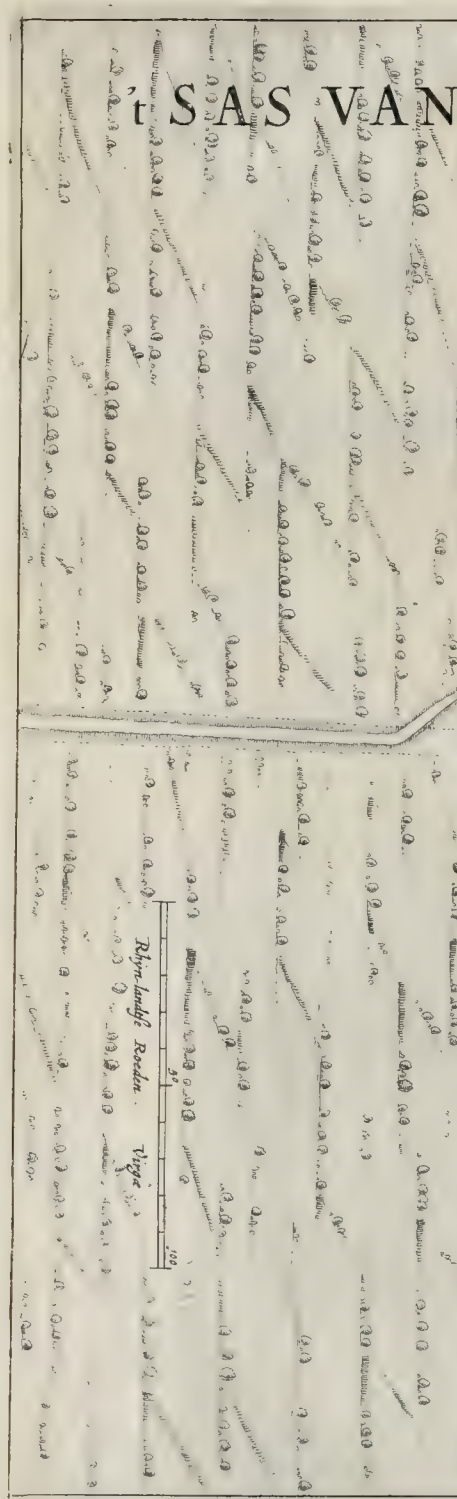 't SAS VAN
Rhyn-landse Roeden. Virgæ
50
100